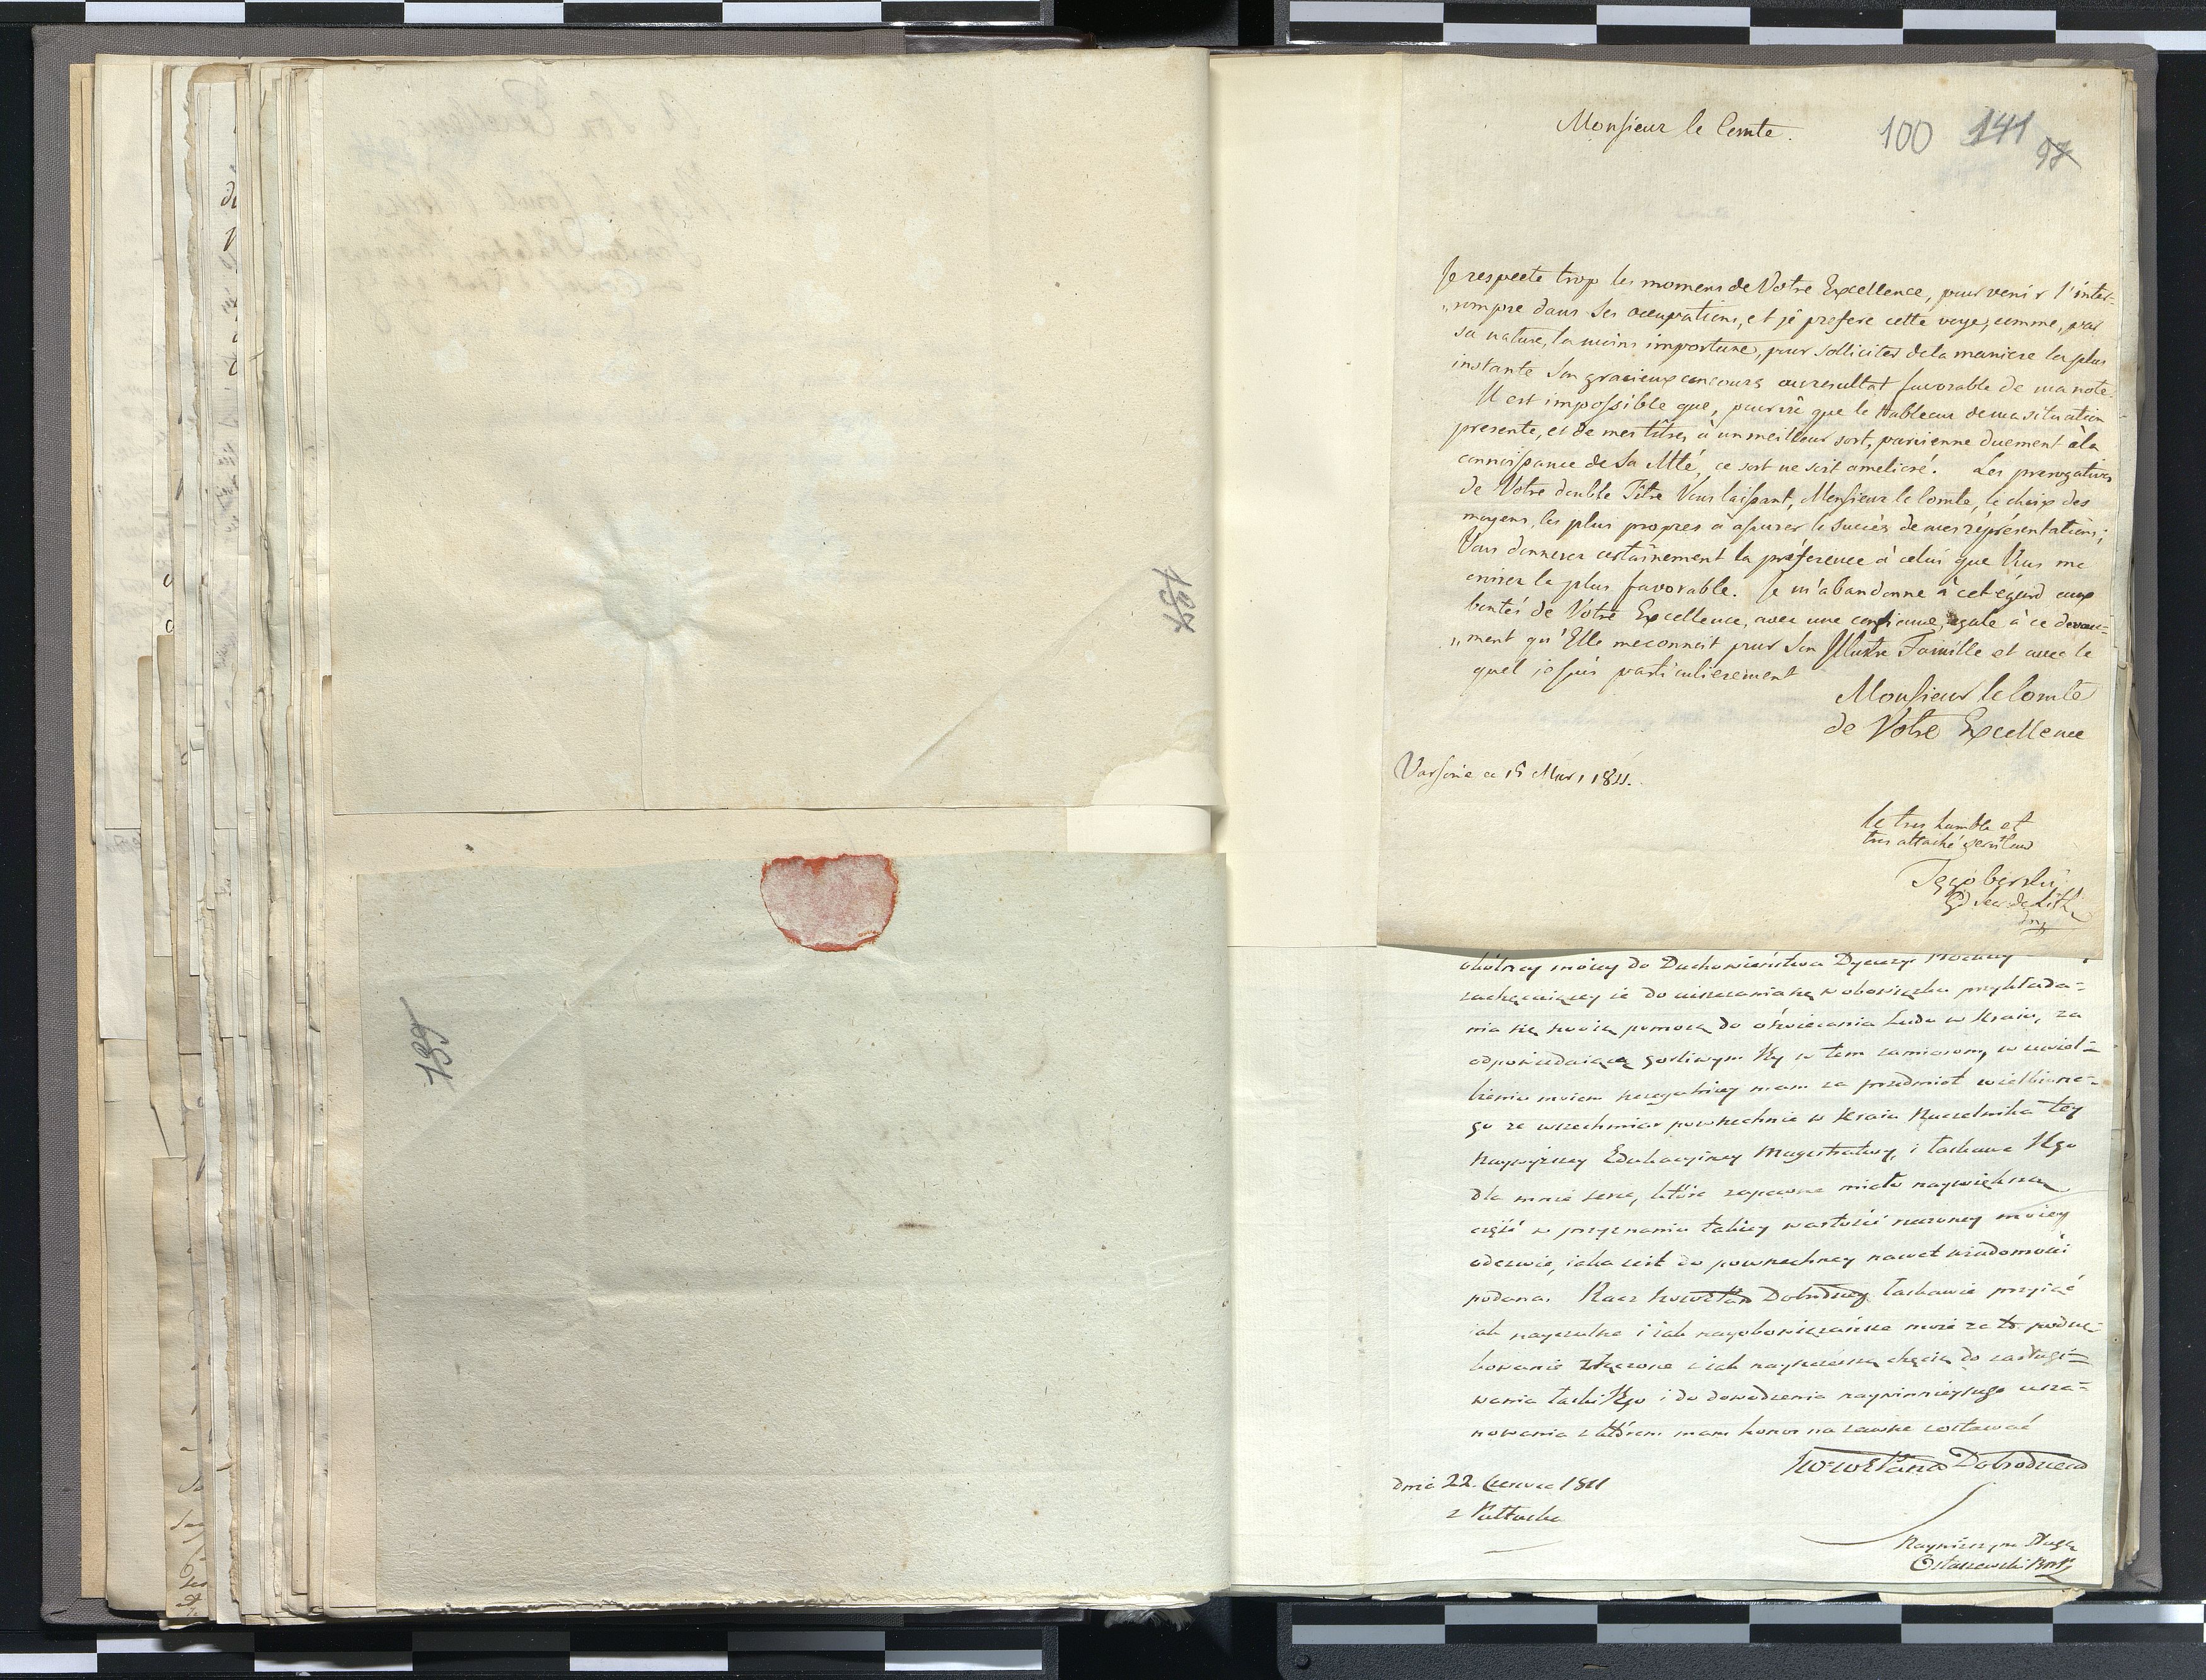 137
139
Monsieur le Comte.
100 141 97
Je respecte trop les momens de Votre Excellence, pour venir l'inter-
„rompre dans Ses occupations, et je prefere cette voye, comme, par
sa nature, la moins importune, pour solliciter de la maniere la plus
instante Son gracieux concours au resultat favorable de ma note.
Il est impossible que, pourvû que le tableau de ma situation
presente, et de mes titres à un meilleur sort, parvienne duement à la
connoissance de Sa Mté, ce sort ne soit amelioré. Les prerogatives
de Votre double Titre Vous laissant, Monsieur le Comte, le choix des
moyens, les plus propres à assurer le succès de mes répresentations;
Vous donnerez certainement la préference à celui que Vous me
croirez le plus favorable. Je m'abandonne à cet égard aux
bontés de Votre Excellence, avec une confience, egale à ce devoue-
„ment qu'Elle me connoit pour Son Illustre Famille et avec le
quel je suis particulierement
Monsieur le Comte
de Votre Excellence
Varsovie ce 15 Mars 1811.
le tres humble et
tres attaché serviteur
Tęgoborski
okólney moiey do Duchowieństwa Dyecezyi
zachęcaiącey ie do obowiązku przykłada-
nia się swoią pomocą do oświecania Ludu w Kraiu, za
odpowiadaiącą gorliwym Jey w tem zamiarom, w uwiel-
bieniu moiem mam za przedmiot wielbione-
go ze wszechmiar powszechnie w Kraiu Naczelnika tey
Naywyższey Edukacyiney Magistratury, i łaskawe Jego
dla mnie serce, które zapewne miało naywiększą
część w przyznaniu takiey wartości rzeczoney moiey
odezwie, iaka iest do powszechney nawet wiadomości
podana. Racz JWWPan Dobrodziey łaskawie przyiąć
iak nayczulsze i iak nayobowiązańsze moie za to podzię-
kowanie złączone z iak nayszczerszą chęcią do zasługi-
wania łaski Jego i do dowodzenia naywinnieyszego usza-
nowania z którem mam honor na zawsze zostawać
JWWPana Dobrodzieia
dnia 22. Czerwca 1811
z Pułtuska
Nayniższym Sługą
Ostaszewski